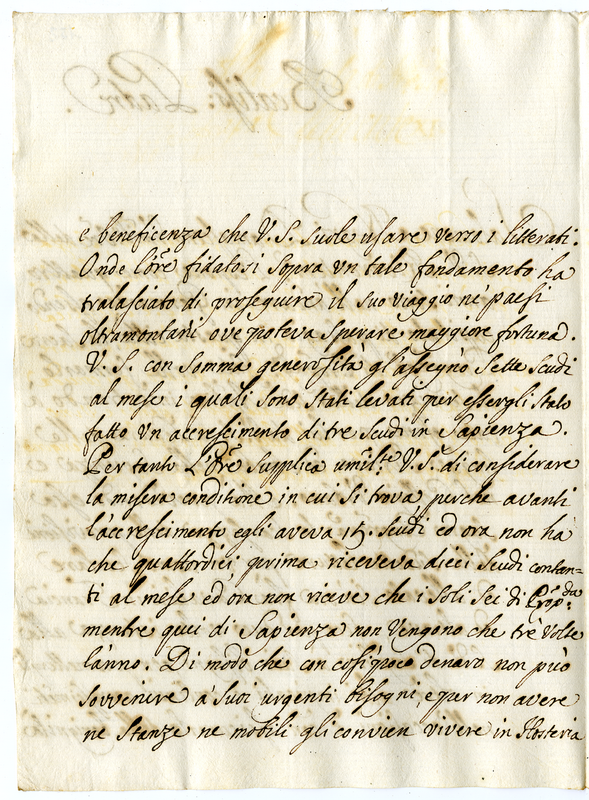 Beatiss: Padre.
e beneficenza che V. S. suole usare verso i litterati.
Onde l'ore fidatosi sopra vn tale fondamento ha
tralasciato di proseguire il suo viaggio ne' paesi
oltramontani ove poteva sperare maggiore fortuna.
V. S. con somma generosità gl'assegnò sette scudi
al mese i quali sono stati levati per essergli stato
fatto vn accrescimento di tre scudi in Sapienza.
Per tanto l'Ore supplica umilte V. S. di considerare
la misera conditione in cui si trova, perche avanti
l'accrescimento egli aveva 15. scudi ed ora non ha
che quattordici, prima riceveva dieci scudi contan=
ti al mese ed ora non riceve che i soli sei di Propda:
mentre quei di Sapienza non vengono che tre volte
l'anno. Di modo che con cosi poco denaro non può
sovvenire a' suoi urgenti bisogni, e per non avere
ne stanze ne mobili gli convien vivere in Hosteria